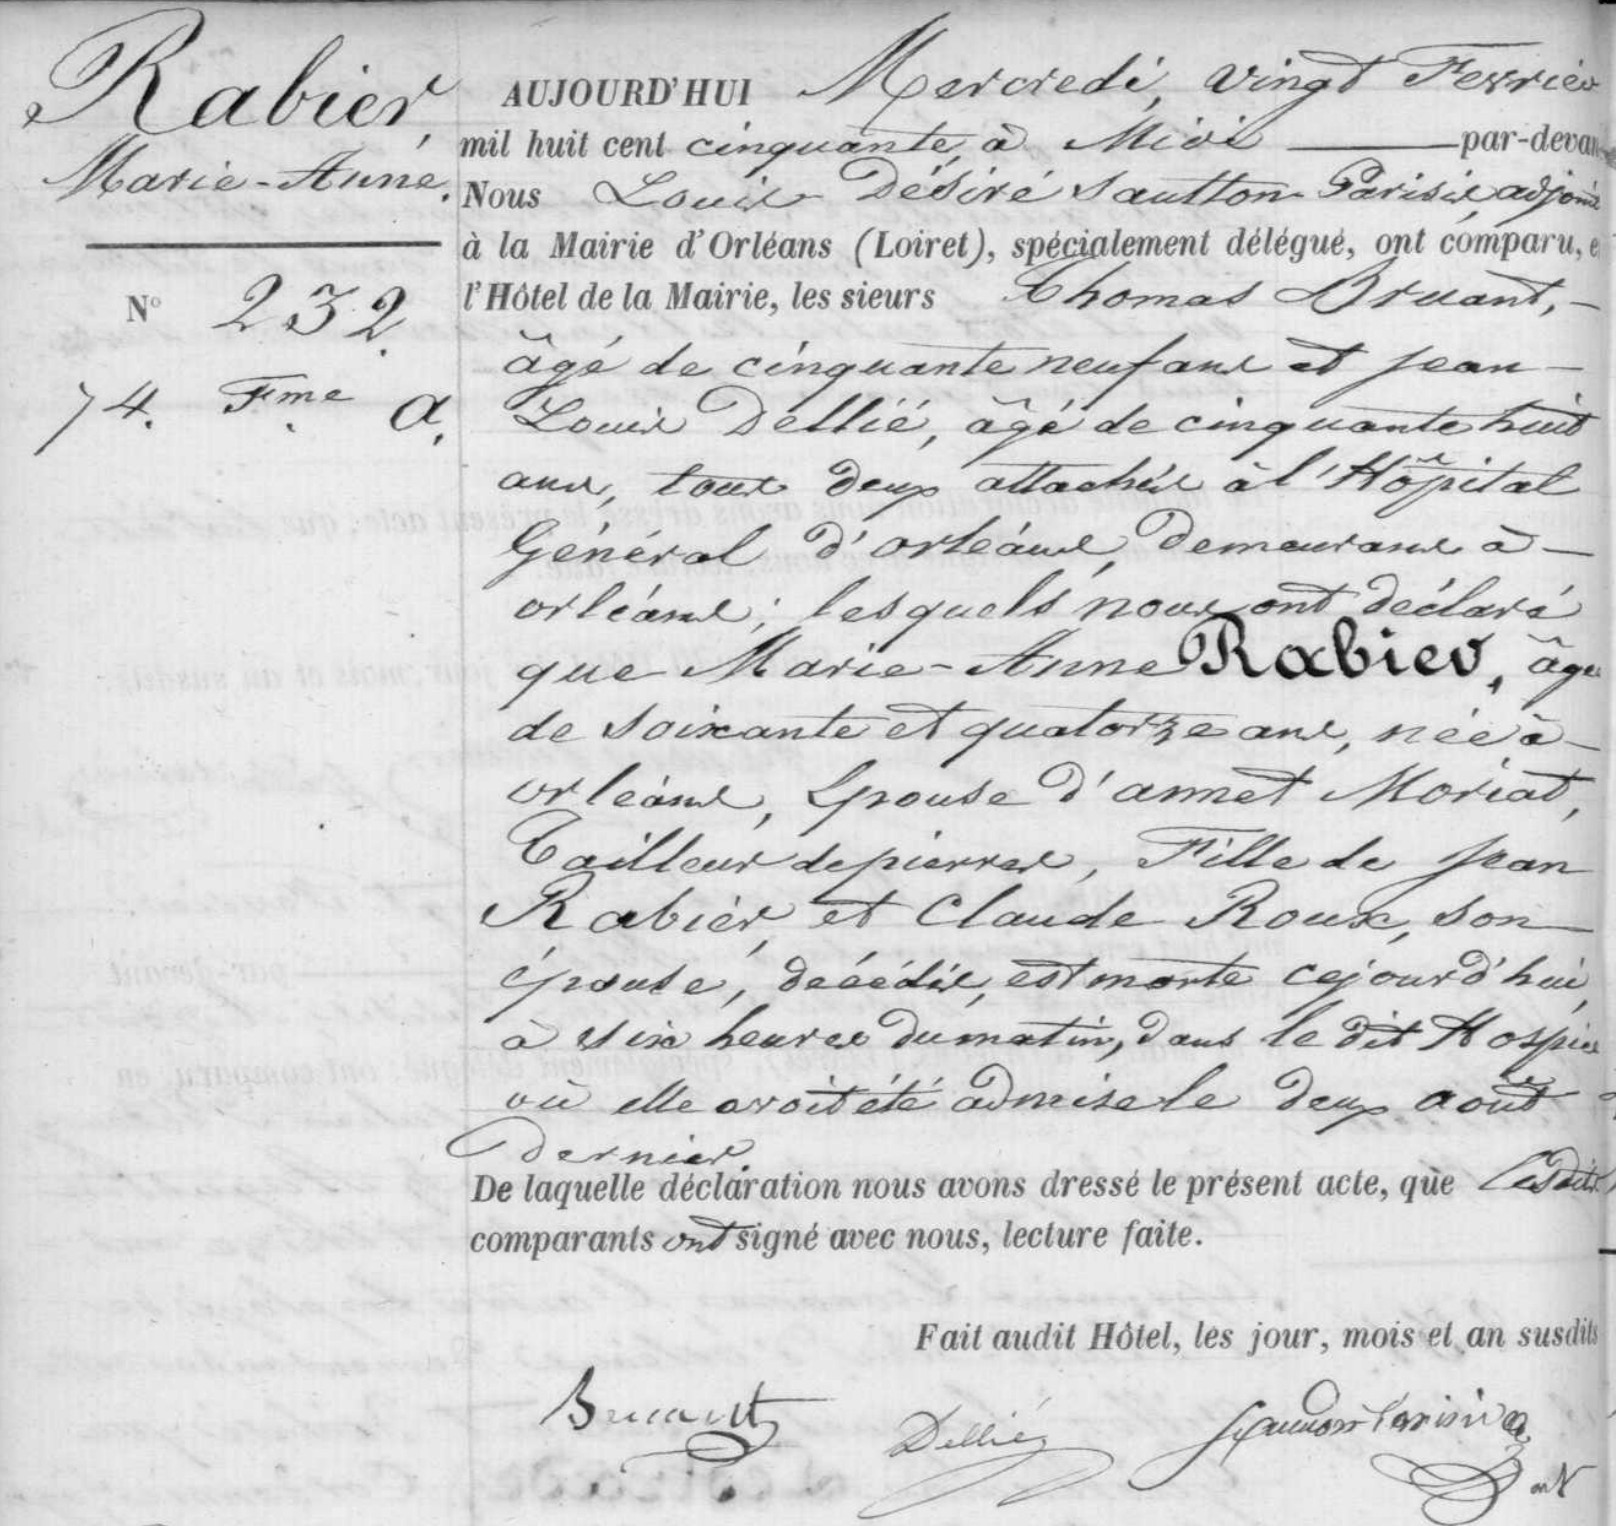 Rabier,
Marie-Anne.
N° 232.
74. Fme. a.
AUJOURD'HUI Mercredi, vingt Fevrier
mil huit cent cinquante, à Midi par-devan
Nous Louis Désiré Sautton Parisis, adjoint
à la Mairie d'Orléans (Loiret), spécialement délégué, ont comparu, e
l'Hôtel de la Mairie, les sieurs Thomas Bruant,
âgé de cinquante neuf ans et jean
Louis Dellié, âgé de cinquante huit
ans, tous deux attachés à l'Hôpital
Général d'orléans, demeurans à
orléans; lesquels nous ont déclaré
que Marie-Anne Rabier, âgée
de soixante et quatorze ans, née à
orléans, Epouse d'annet Moriat,
Tailleur de pierres, Fille de jean
Rabier, et Claude Roux, son
épouse, décédés, est morte cejourd'hui,
à six heures du matin, dans le dit Hospice
où elle avoit été admise le deux août
dernier.
De laquelle déclaration nous avons dressé le présent acte, que lesdits
comparants ont signé avec nous, lecture faite.
Fait audit Hôtel, les jour, mois et an susdits
Bruant
Dellié
Parisis